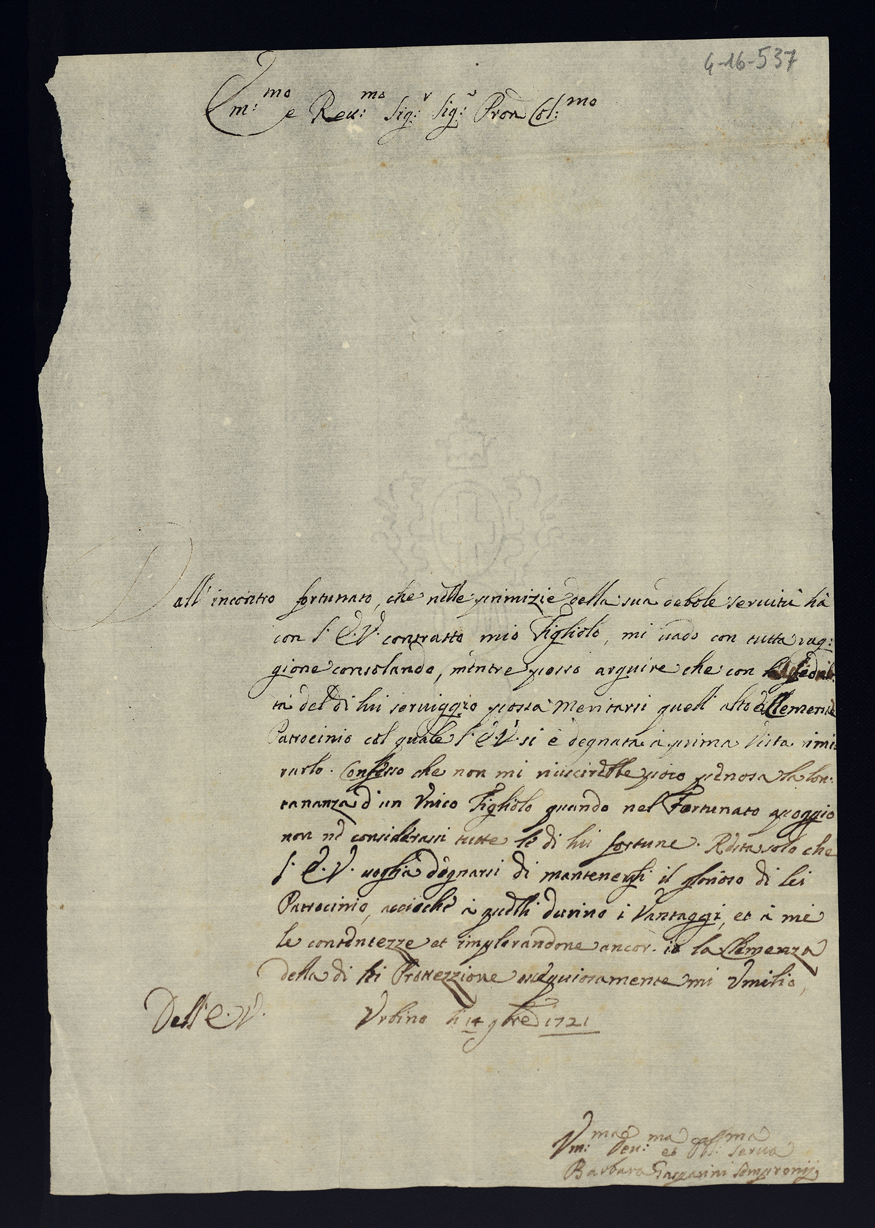 4-16-537
Em:mo e Reu:mo Sig:r Sig:r Pron Col:mo
Dall'incontro fortunato, che nelle primizie della sua debole seruitù hà
con l'E.V. contratto mio Figliolo, mi uado con tutta rag:
gione consolando, mentre posso arguire che con
tà del di lui seruiggio possa meritarsi quell'alto e Clemente
Patrocinio col quale l'E.V. si è degnata à prima vista rimi
rarlo. Confesso che non mi riuscirebbe poco penosa la lon:
tananza d'un Vnico Figliolo quando nel Fortunato apoggio
non ne considerassi tutte le di lui fortune. Resta solo che
l'E.V. uoglia degnarsi di mantenersi il glorioso di lei
Patrocinio, acciochè à quelli durino i Vantaggi, et à me
le contentezze et implorandone ancor io la Clemenza
della di lei Protezzione ossequiosamente mi Vmilio,
Dell'E.V. Vrbino li 14 9bre 1721
Vm:ma Deu:ma et Obl:ma Serua
Barbara Gasparini Sempronij